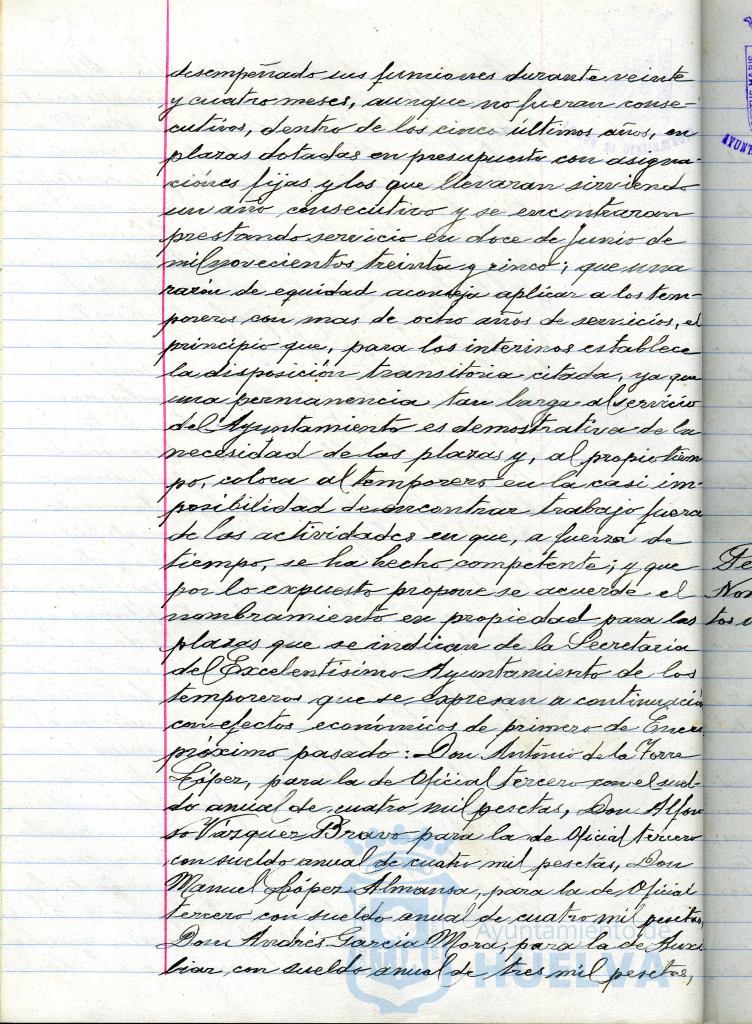 desempeñado sus funciones durante veinte
y cuatro meses, aunque no fueran conse-
cutivos, dentro de los cinco últimos años, en
plazas dotadas en presupuesto con asigna-
ciones fijas y los que llevaran sirviendo
un año consecutivo y se encontraran
prestando servicio en doce de Junio de
mil novecientos treinta y cinco; que una
razón de equidad aconseja aplicar a los tem-
poreros con mas de ocho años de servicios, el
principio que, para los interinos establece
la disposición transitoria citada, ya que
una permanencia tan larga al servicio
del Ayuntamiento es demostrativa de la
necesidad de las plazas y, al propio tiem
po, coloca al temporero en la casi im-
posibilidad de encontrar trabajo fuera
de las actividades en que, a fuerza de
tiempo, se ha hecho competente; y que
por lo expuesto propone se acuerde el
nombramiento en propiedad para las
plazas que se indican de la Secretaria
del Excelentísimo Ayuntamiento de los
temporeros que se expresan a continuació
con efectos económicos de primero de Enero
próximo pasado: Don Antonio de la Torre
López, para la de Oficial tercero con el suel-
do anual de cuatro mil pesetas, Don Alfon
so Vázquez Bravo para la de Oficial tercero
con sueldo anual de cuatro mil pesetas, Don
Manuel López Almansa, para la de Oficial
tercero con sueldo anual de cuatro mil pesetas,
Don Andrés García Mora, para la de Auxi
liar, con sueldo anual de tres mil pesetas,
Ayuntamiento de
HUELVA